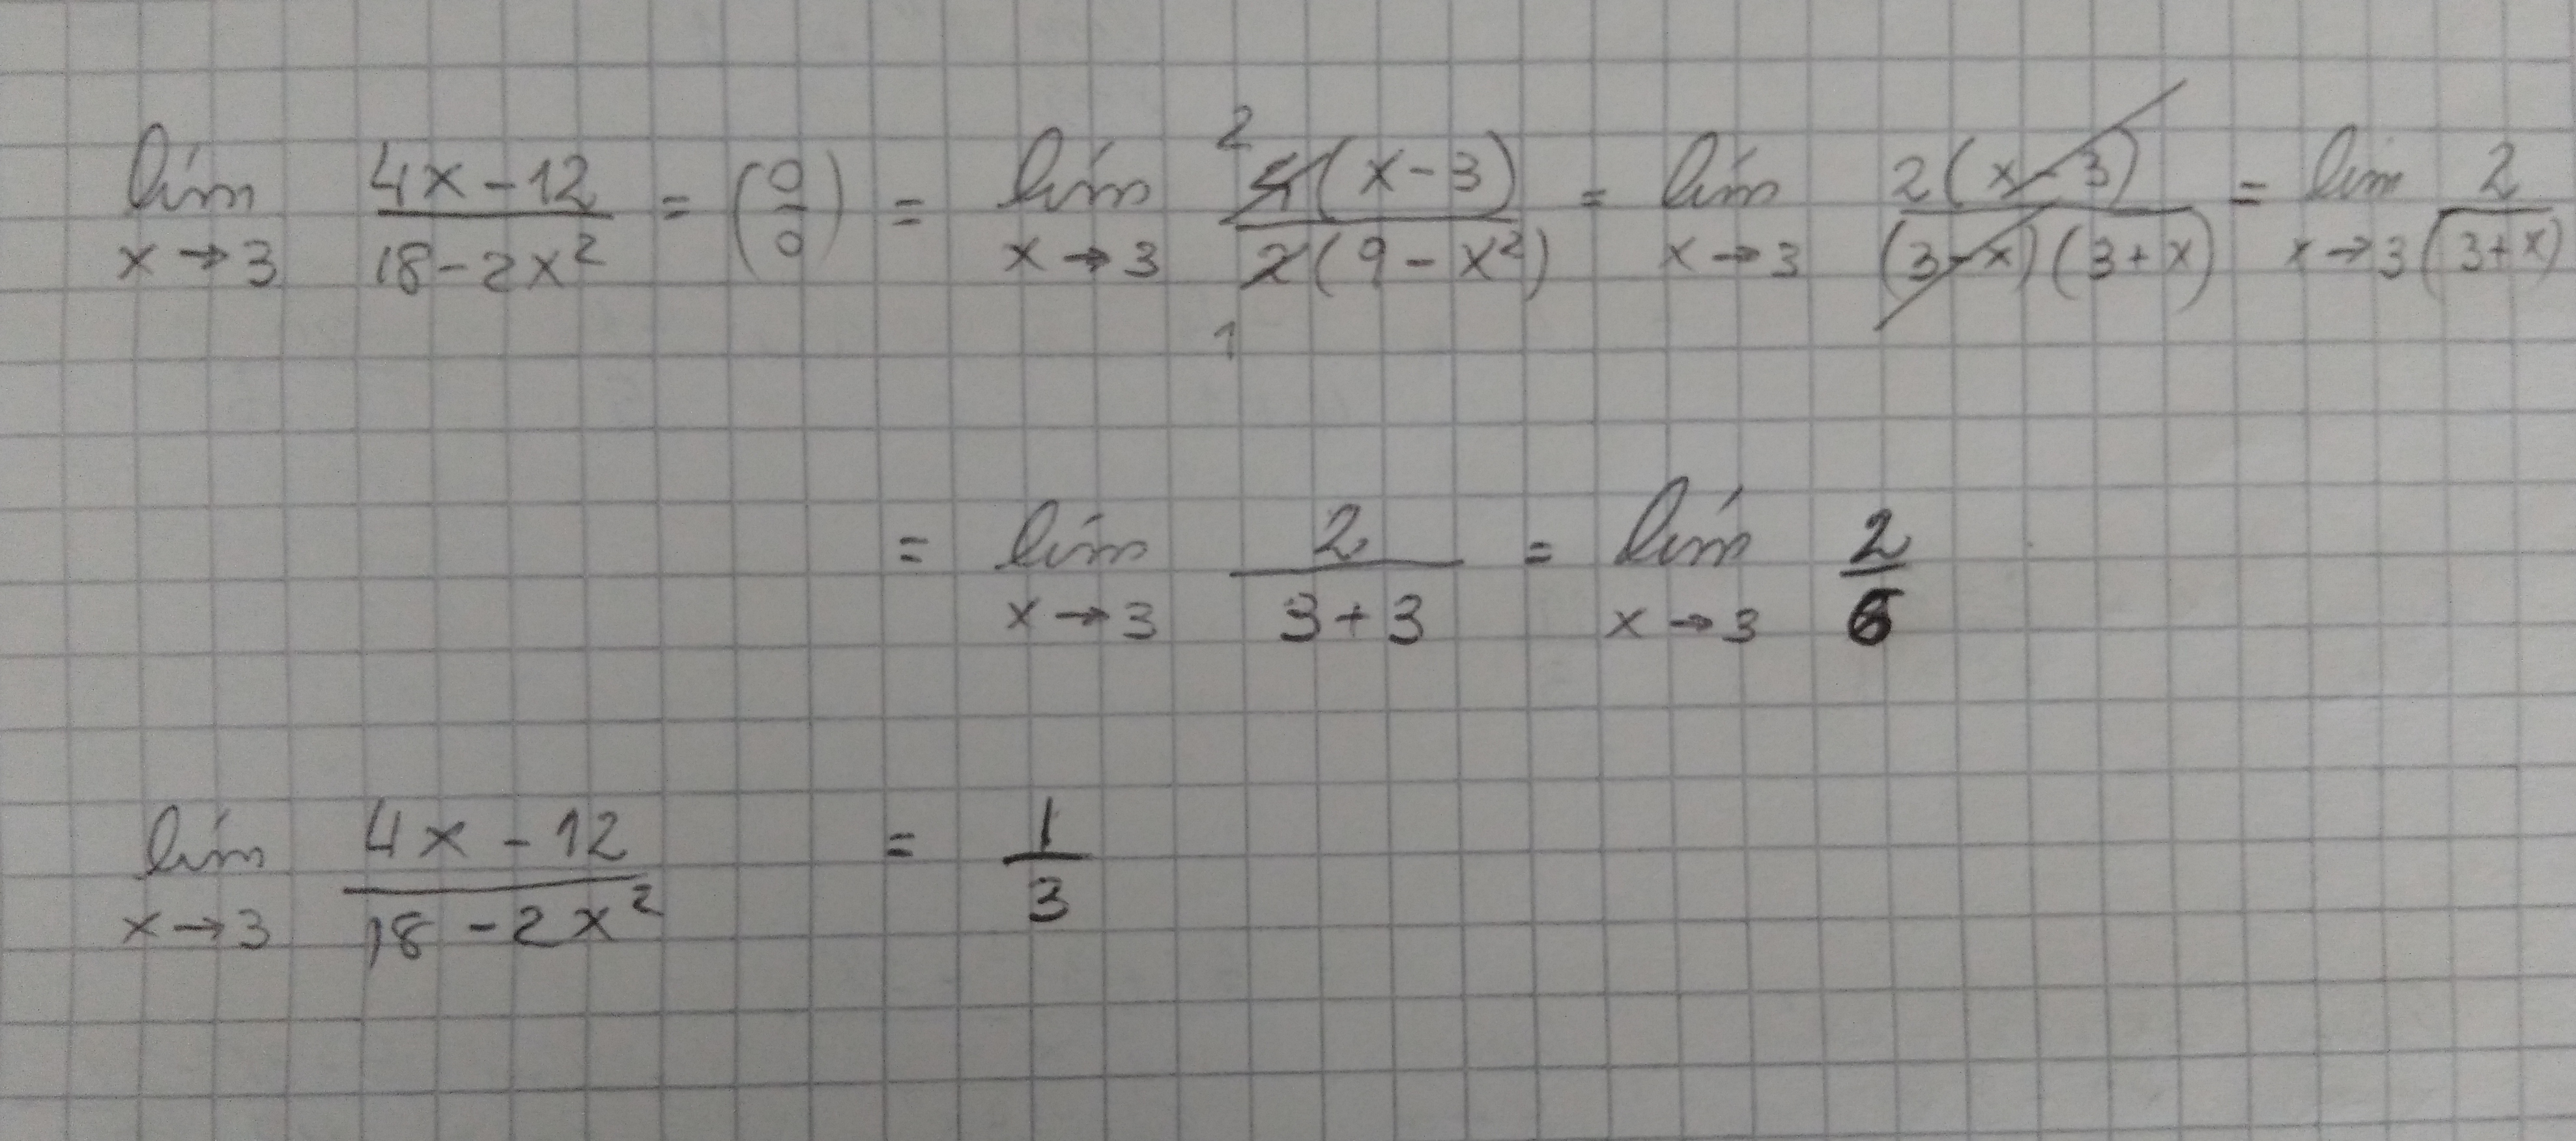 lím x→3 (4x-12)/(18-2x²) = (0/0) = lím x→3 2 4(x-3)/2(9-x²) 1 = lím x→3 2(x-3)/(3-x)(3+x) = lím x→3 2/(3+x)
= lím x→3 2/(3+3) = lím x→3 2/6
lím x→3 (4x-12)/(18-2x²) = 1/3